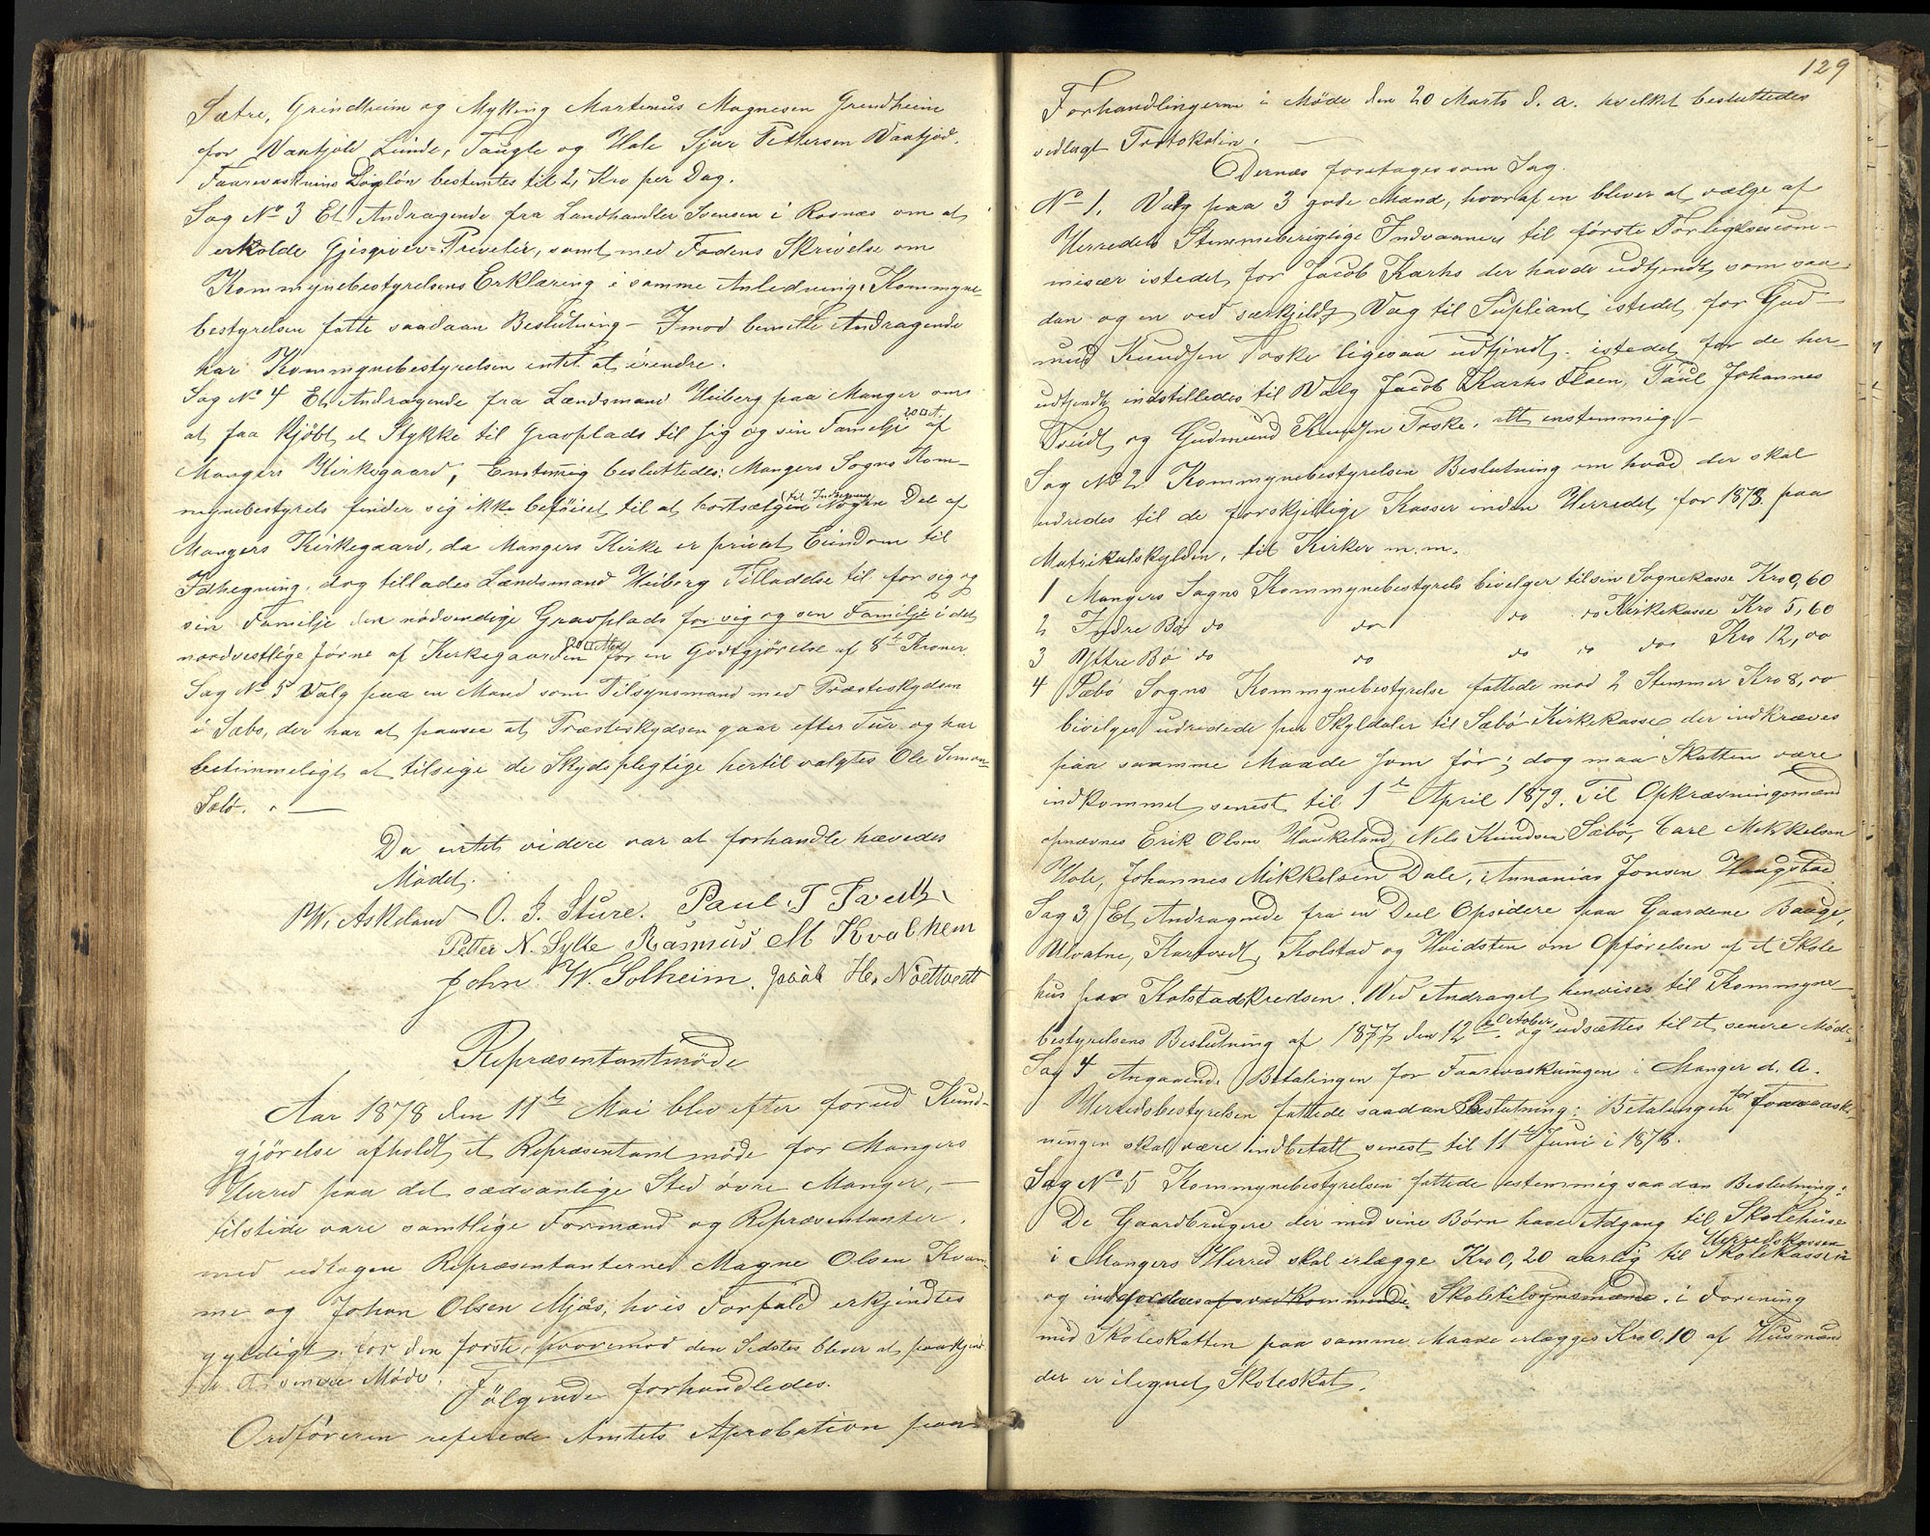 Sætre, Grindheim og Myking Martinus Magnesen Grindheim
for Vantjöld Lunde, Taugle og Hole Sjur Pettersen Vantjod.
Faarevasknings Dagløn bestemtes til 2 Kro per Dag.
Sag No 3 Et Andragende fra Landhandler Svensen i Rosnæs om at
erholde Gjesgiver-Priveler, samt med Fodens Skrivelse om
Kommynebestyrelsens Erklæring i samme Anledning. Kommyne-
bestyrelsen fatte saadaan Beslutning - Imod bemelte Andragende
har Kommynebestyrelsen intet at erendre.
Sag No 4 Et Andragende fra Lændsmand Heiberg paa Manger om
at faa kjöbt et Stykke til Gravplads til sig og sin Familje af
Mangers Kirkegaard, Enstemig besluttedes: Mangers Sogns Kom-
mynebestyrels finder sig ikke beföiet til at bortsælgen Nogen Del af
Mangers Kirkegaard, da Mangers Kirke er privat Eiendom til
Idhegning, dog tillades Lændsmand Heiberg Tilladelse til for sig og
sin Familje den nödvendige Gravplads for sig og sin Familje i det
nordvestlige Jørne af Kirkegaarden for en Godtgjörelse af 8 Kroner.
Sag No 5 Valg paa en Mand som Tilsynsmand med Præsteskydsen
i Sæbø, der har at paasee at Præsteskydsen gaar efter Tur og har
bestimmeligt at tilsige de Skydspligtige hertil valgtes Ole Simon-
Sæbö.
Da intet videre var at forhandle hævedes
Mödet.
W. Askeland O. J. Sture. Paul T Tvedt
Petter N. Sylte Rasmus M Kvalhem
John W. Solheim. Jakob H. Nöttvedt
Repræsentantmöde
Aar 1878 den 11te Mai blev efter forud Kund-
gjörelse afholdt et Repræsentant möde for Mangers
Herred paa det sædvanlige Sted övre Manger, -
tilstede vare samtlige Formænd og Repræsentanter.
med udtagen Repræsentanterne Magne Olsen Kvam-
me og Johan Olsen Mjös, hvis Forfald erkjendtes
gyldigt for den förste, hvorimod den Sidstes blever at paakjend-
es i senere Möde.
Fölgende forhandledes.
Ordföreren referede Amtets Aprobation paa
129
Forhandlingerne i Möde den 20 Marts d. a. hvilket besluttedes
vedlagt Protokolin.
Dernæs foretages som Sag.
No 1. Valg paa 3 gode Mænd, hvoraf en bliver at vælge af
Herredets Stemmeberigtige Indvaanere til förste Forligelsecom-
misær istedet for Jacob Karhs der havde udtjendt som saa-
dan og en ved særkjildt Valg til Supliant istedet for God-
mund Knudsen Toske ligesaa udtjendt. istedet for de her-
udtjendte indstilledes til Valg Jacob Karhs Elsen, Paul Johannes
Tvedt og Gudmund Knudsen Toske. alt enstemmig.
Sag No 2 Kommynebestyrelsen Beslutning om hvad der skal
udredes til de forskjellige Kasser inden Herredet for 1878 paa
Matrikulskylden, til Kirker m. m.
1 Mangers Sogns Kommynebestyrels bivelger til sin Sognekasse Kro 0,60
2 Indre Bö do do do do Kirkekasse Kro 5,60
3 Yttre Bö do do do do do Kro 12,00
4 Sæbö Sogns Kommynebestyrelse fattede mod 2 Stemmer Kro 8,00
bivilges udredede per Skyldaler til Sæbö Kirkekasse der indkræves
paa saamme Maade som för; dog maa Skatten være
indkommet senest til 1te April 1879. Til Opkrævningsmænd
opnævnes Erik Olsen Haukeland, Nils Knudsen Sæbö, Carl Mikkelsen
Hole, Johannes Mikkelsen Dale, Annanias Jonsen Haugstad.
Sag 3 Et Andragende fra en Deel Opsidere paa Gaardene Bauge,
Ulvatne, Kartvedt, Kolstad og Hvidsten om Opförelsen af et Skole
hus paa Kolstadkredsen. Ved Andraget henvises til Kommyne-
bestyrelsens Beslutning af 1877 den 12te October og udsættes til et senere Möde.
Sag 4 Angaaende Betalingen for Faarevaskningen i Manger d. A.
Herredsbestyrelsen fattede saadan Beslutning: Betalingen for Faarevask-
ningen skal være indbetalt senest til 11te Juni i 1878.
Sag No 5 Kommynebestyrelsen fattede estemmig saadan Beslutning:
De Gaardbrugere der med sine Børn have Adgang til Skolehuse
i Mangers Herred skal erlægge Kro 0,20 aarlig til Skolekassen Herredskassen
og indfordres af vedkommende Skoletilsynsmænd i Forening
med Skoleskatten paa samme Maade erlægges Kro 0,10 af Husmænd
der er ilignet Skoleskat.